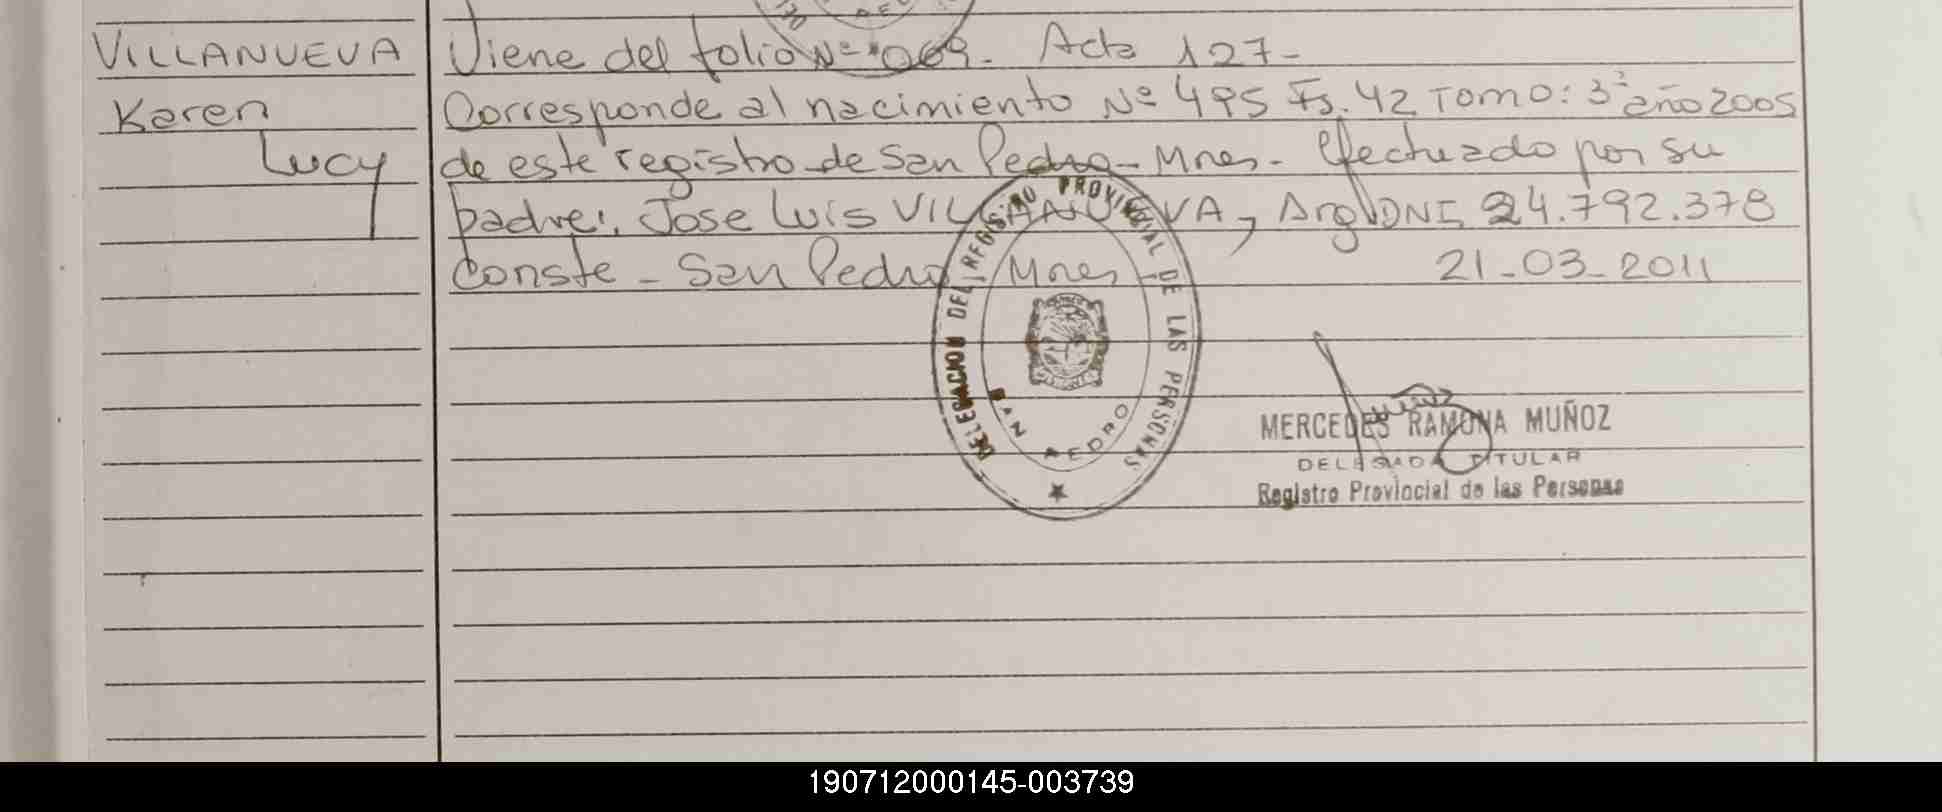 VILLANUEVA
Karen
Lucy
Viene del folio Nº 069. Acta 127-
Corresponde al nacimiento Nº 495 Fs. 42 Tomo: 3º año 2005
de este registro de San Pedro - Mnes - Efectuado por su
padre: Jose Luis VILLANUEVA, Arg DNI 24.792.378
Conste - San Pedro Mnes 21-03-2011
DELEGACION DEL REGISTRO PROVINCIAL DE LAS PERSONAS
SAN PEDRO
MERCEDES RAMONA MUÑOZ
DELEGADA TITULAR
Registro Provincial de las Personas
190712000145-003739